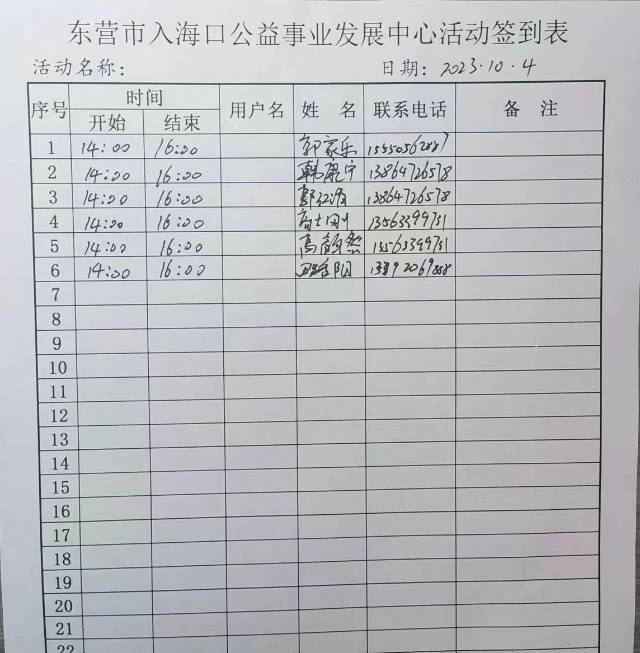 东营市入海口公益事业发展中心活动签到表
活动名称： 日期：2023.10.4
序号 时间 用户名 姓 名 联系电话 备 注
开始 结束
1 14:00 16:00 郭家乐
2 14:00 16:00 韩康宁 13864726578
3 14:00 16:00 13864726578
4 14:00 16:00 高士刚 13563399751
5 14:00 16:00 13563399751
6 14:00 16:00
7
8
9
10
11
12
13
14
15
16
17
18
19
20
21
22